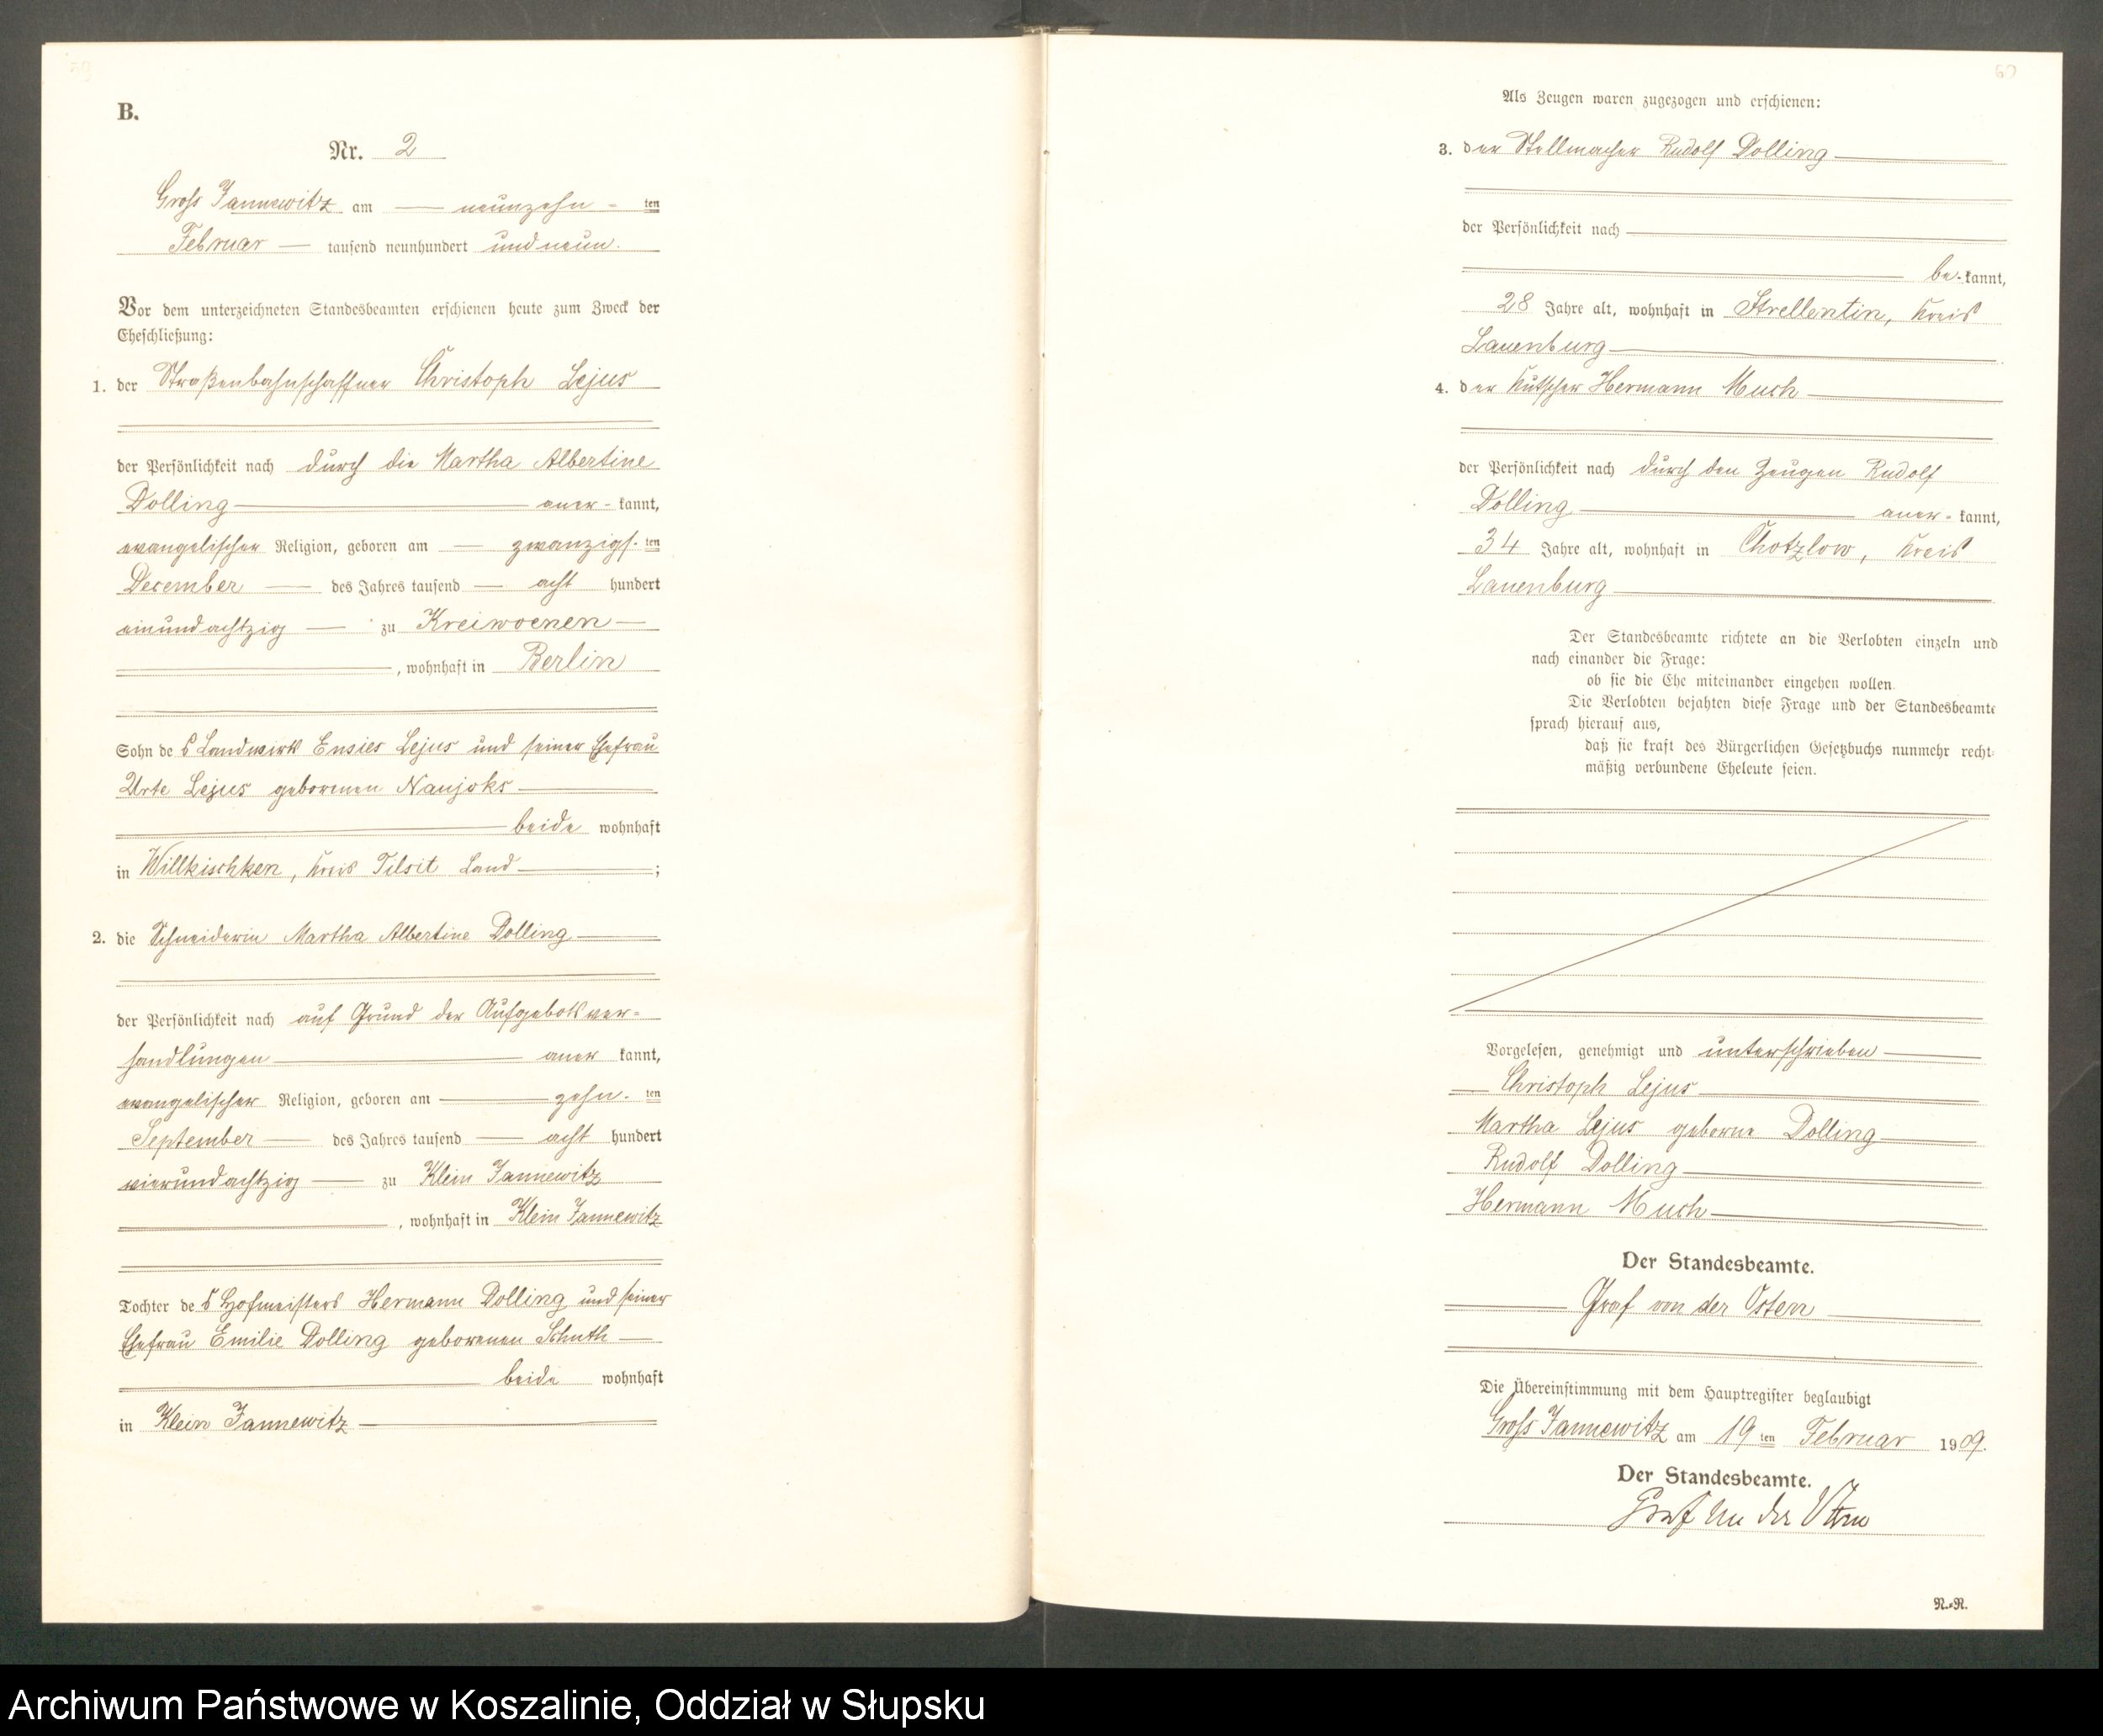 B.
Nr. 2
Gross Jannewitz am neunzehn ten
Februar tausend neunhundert und neun.
Vor dem unterzeichneten Standesbeamten erschienen heute zum Zweck der
Eheschließung:
1. der Straßenbahnschaffner Christoph Lejus
der Persönlichkeit nach durch die Martha Albertine
Dolling aner-kannt,
evangelischer Religion, geboren am zwanzigs-ten
December des Jahres tausend acht hundert
einundachtzig zu Kreiwoenen
, wohnhaft in Berlin
Sohn des Landwirts Ensies Lejus und seiner Ehefrau
Urte Lejus geborenen Naujoks
beide wohnhaft
in Willkischken, Kreis Tilsit Land ;
2. die Schneiderin Martha Albertine Dolling
der Persönlichkeit nach auf Grund der Aufgebotsver-
handlungen aner kannt,
evangelischer Religion, geboren am zehn-ten
September des Jahres tausend acht hundert
vierundachtzig zu Klein Jannewitz
, wohnhaft in Klein Jannewitz
Tochter des Hofmeisters Hermann Dolling und seiner
Ehefrau Emilie Dolling geborenen Schuth
beide wohnhaft
in Klein Jannewitz
60
Als Zeugen waren zugezogen und erschienen:
3. der Stellmacher Rudolf Dolling
der Persönlichkeit nach
be-kannt,
28 Jahre alt, wohnhaft in Strellentin, Kreis
Lauenburg
4. der Kutscher Hermann Much
der Persönlichkeit nach durch den Zeugen Rudolf
Dolling aner-kannt,
34 Jahre alt, wohnhaft in Chotzlow, Kreis
Lauenburg
Der Standesbeamte richtete an die Verlobten einzeln und
nach einander die Frage:
ob sie die Ehe miteinander eingehen wollen.
Die Verlobten bejahten diese Frage und der Standesbeamte
sprach hierauf aus,
daß sie kraft des Bürgerlichen Gesetzbuchs nunmehr recht-
mäßig verbundene Eheleute seien.
Vorgelesen, genehmigt und unterschrieben
Christoph Lejus
Martha Lejus geborne Dolling
Rudolf Dolling
Hermann Much
Der Standesbeamte.
Graf von der Osten
Die Übereinstimmung mit dem Hauptregister beglaubigt
Gross Jannewitz am 19 ten Februar 1909.
Der Standesbeamte.
Graf von der Osten
N.-N.
Archiwum Państwowe w Koszalinie, Oddział w Słupsku